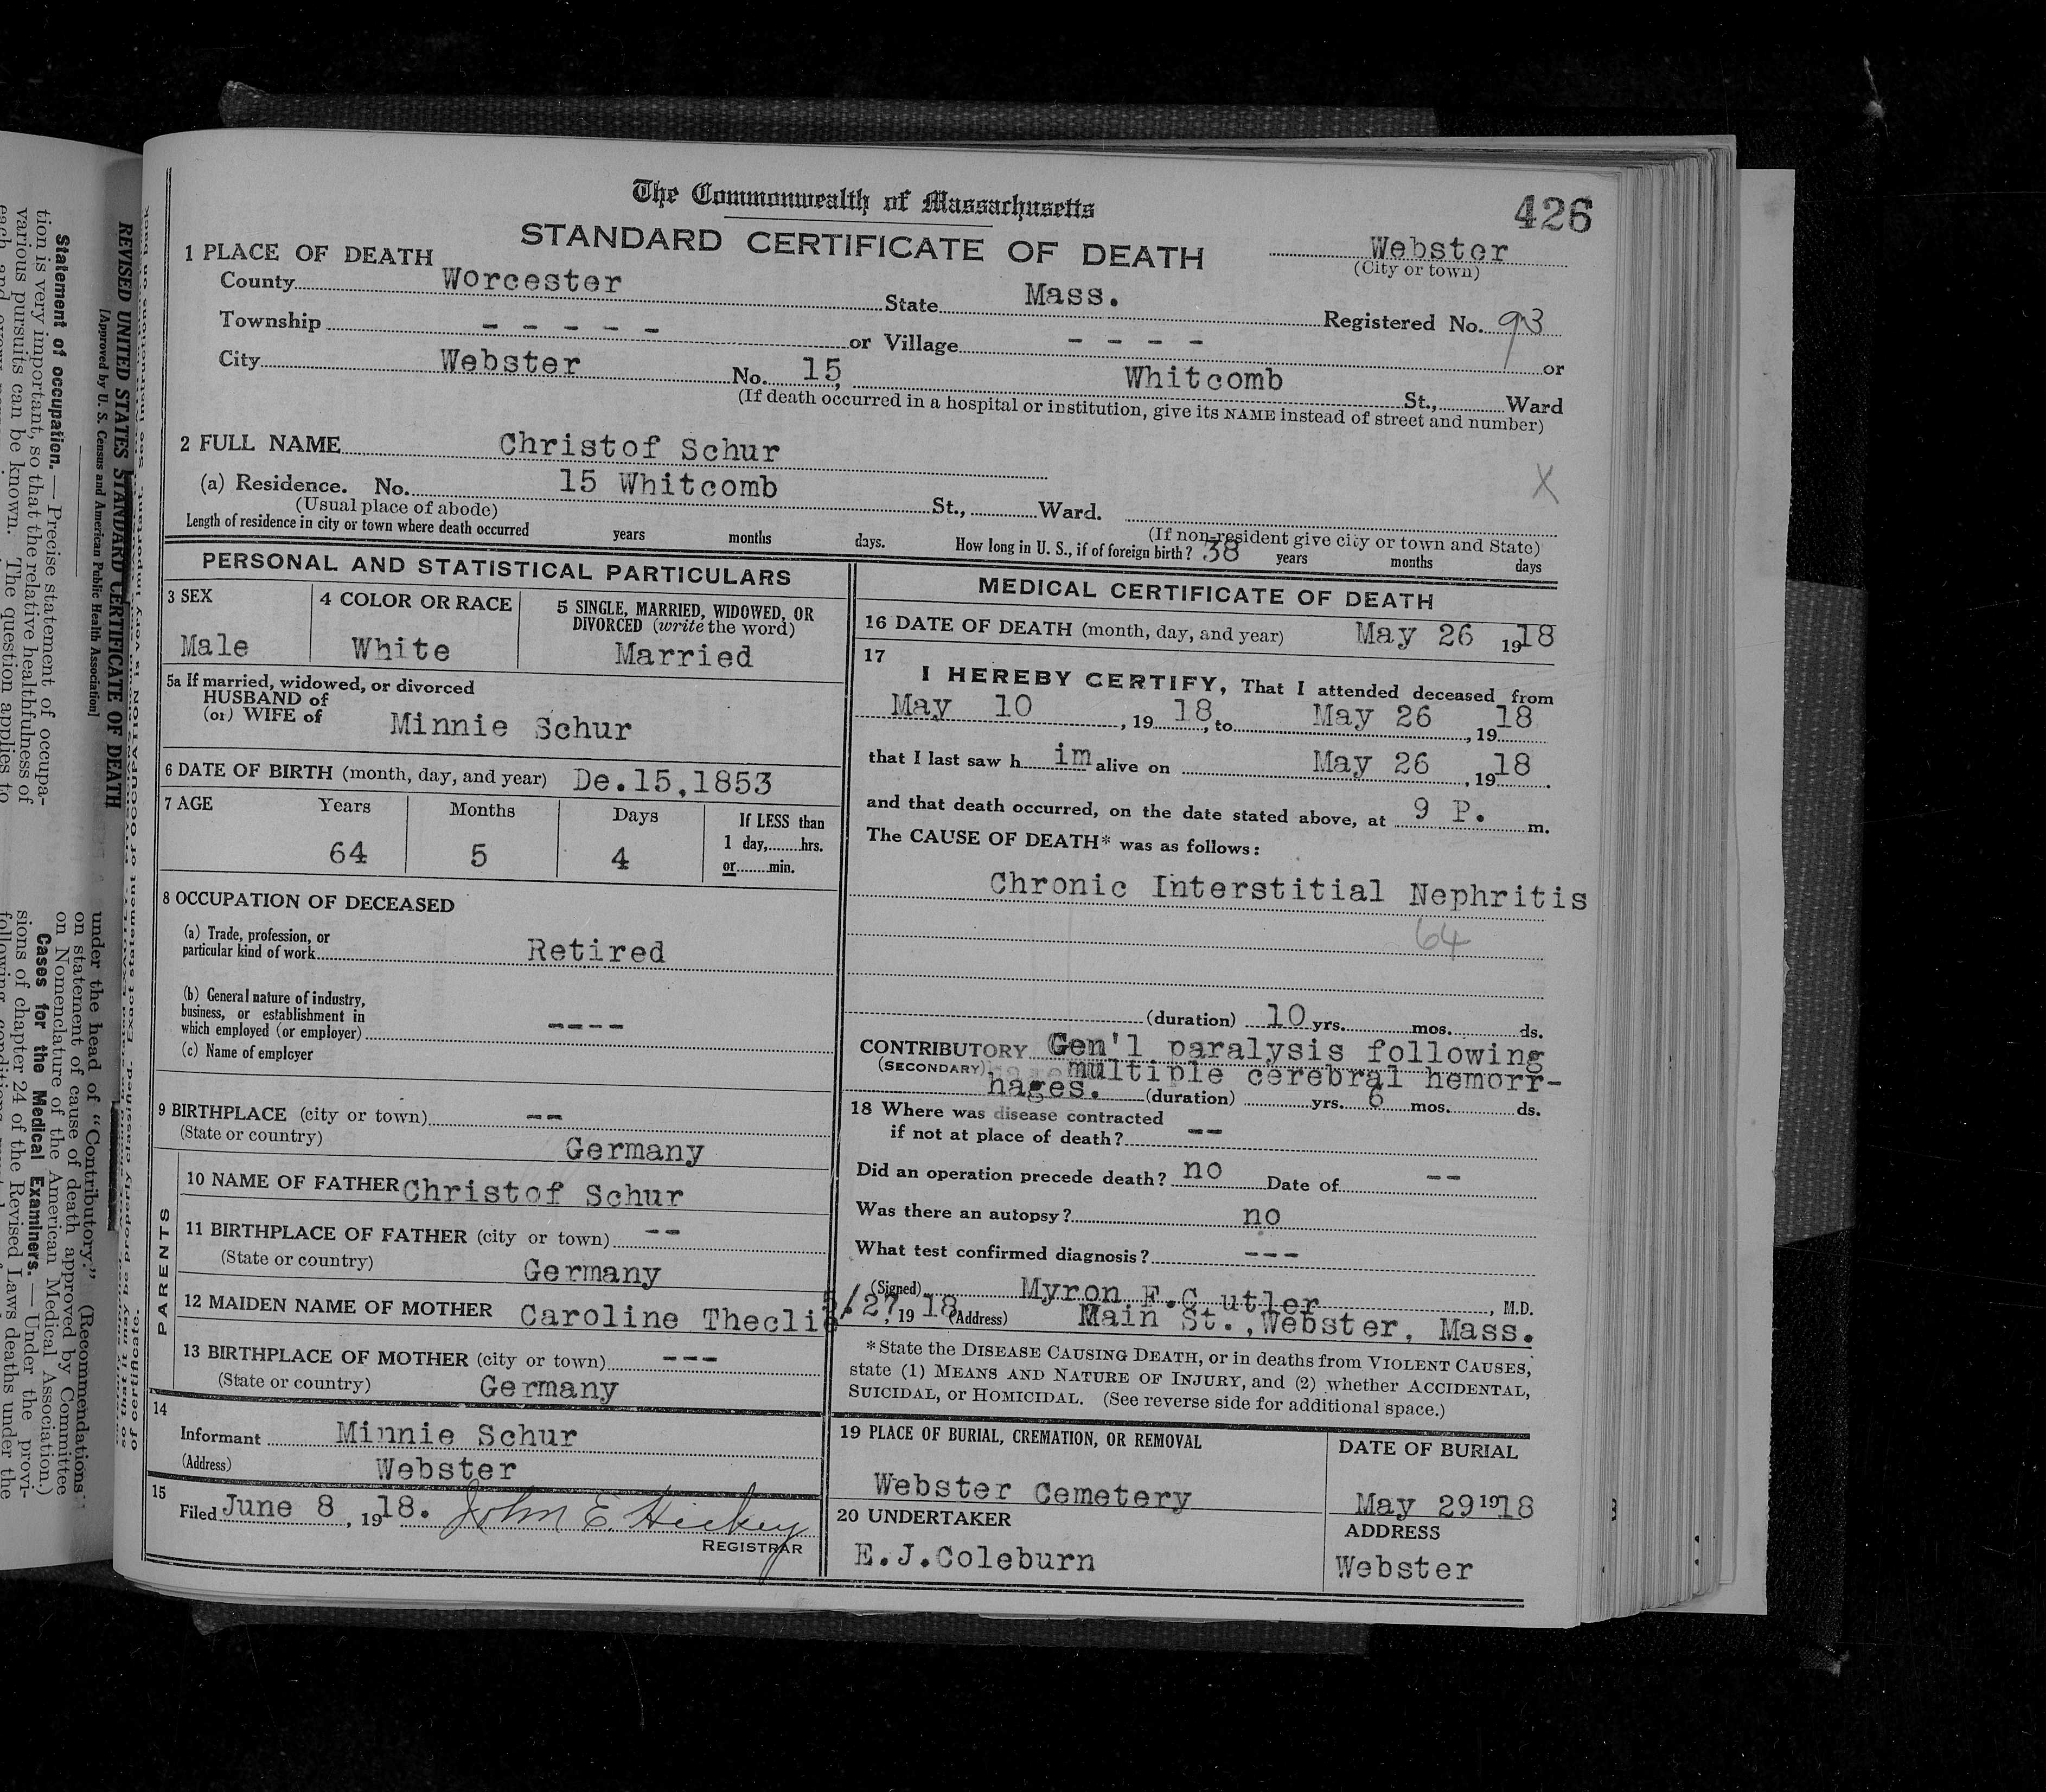 The Commonwealth of Massachusetts
426
STANDARD CERTIFICATE OF DEATH
Webster
(City or town)
1 PLACE OF DEATH
County Worcester State Mass.
Registered No. 93
Township - - - - - or Village - - - -
or
City Webster No. 15, Whitcomb St., Ward
(If death occurred in a hospital or institution, give its NAME instead of street and number)
2 FULL NAME Christof Schur
X
(a) Residence. No. 15 Whitcomb St., Ward.
(Usual place of abode)
(If non-resident give city or town and State)
Length of residence in city or town where death occurred years months days. How long in U. S., if of foreign birth? 38 years months days
PERSONAL AND STATISTICAL PARTICULARS
3 SEX
Male
4 COLOR OR RACE
White
5 SINGLE, MARRIED, WIDOWED, OR
DIVORCED (write the word)
Married
5a If married, widowed, or divorced
HUSBAND of
(or) WIFE of Minnie Schur
6 DATE OF BIRTH (month, day, and year) De.15,1853
7 AGE Years Months Days If LESS than
1 day,......hrs.
or......min.
64 5 4
8 OCCUPATION OF DECEASED
(a) Trade, profession, or
particular kind of work Retired
(b) General nature of industry,
business, or establishment in
which employed (or employer) ----
(c) Name of employer
9 BIRTHPLACE (city or town) --
(State or country) Germany
PARENTS
10 NAME OF FATHER Christof Schur
11 BIRTHPLACE OF FATHER (city or town) --
(State or country) Germany
12 MAIDEN NAME OF MOTHER Caroline
13 BIRTHPLACE OF MOTHER (city or town) ---
(State or country) Germany
14
Informant Minnie Schur
(Address) Webster
15
Filed June 8, 1918. John E. Hickey
REGISTRAR
MEDICAL CERTIFICATE OF DEATH
16 DATE OF DEATH (month, day, and year) May 26 1918
17
I HEREBY CERTIFY, That I attended deceased from
May 10, 19 18, to May 26, 19 18
that I last saw h im alive on May 26, 19 18.
and that death occurred, on the date stated above, at 9 P. m.
The CAUSE OF DEATH* was as follows:
Chronic Interstitial Nephritis
64
(duration) 10 yrs. mos. ds.
CONTRIBUTORY Gen'l paralysis following
(SECONDARY) multiple cerebral hemorr-
hages. (duration) yrs. 6 mos. ds.
18 Where was disease contracted
if not at place of death? --
Did an operation precede death? no Date of --
Was there an autopsy? no
What test confirmed diagnosis? ---
(Signed) Myron F.C utler, M.D.
5/27, 19 18 (Address) Main St.,Webster, Mass.
*State the DISEASE CAUSING DEATH, or in deaths from VIOLENT CAUSES,
state (1) MEANS AND NATURE OF INJURY, and (2) whether ACCIDENTAL,
SUICIDAL, or HOMICIDAL. (See reverse side for additional space.)
19 PLACE OF BURIAL, CREMATION, OR REMOVAL
Webster Cemetery
DATE OF BURIAL
May 29 1918
20 UNDERTAKER
E.J.Coleburn
ADDRESS
Webster
REVISED UNITED STATES STANDARD CERTIFICATE OF DEATH
[Approved by U. S. Census and American Public Health Association]
Statement of occupation. — Precise statement of occupa-
tion is very important, so that the relative healthfulness of
various pursuits can be known. The question applies to
under the head of "Contributory." (Recommendations
on statement of cause of death approved by Committee
on Nomenclature of the American Medical Association.)
Cases for the Medical Examiners. — Under the provi-
sions of chapter 24 of the Revised Laws deaths under the
so that it may be properly classified. Exact statement of OCCUPATION is very important. See instructions on back
of certificate.